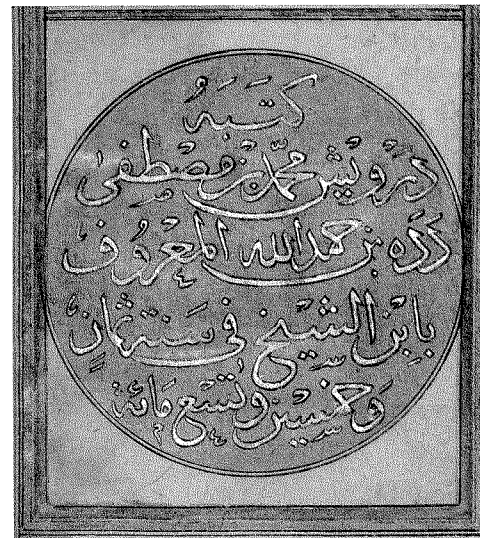 كَتَبَهُ
دَرْوِيش محمّد بن مصْطفىٰ
دَدَه بن حمد الله المعْرُوف
بِابْن الشيخ فى سَنَة ثمانٍ
وَخمسين وتسع مَائة